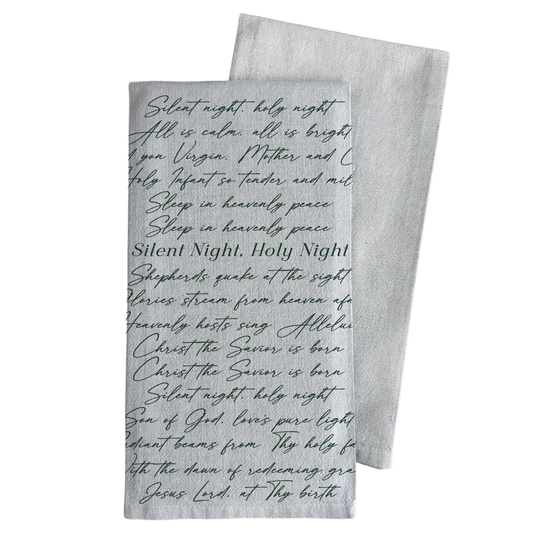 Silent night, holy night
All is calm, all is bright
d yon Virgin, Mother and C
Holy Infant so tender and mil
Sleep in heavenly peace
Sleep in heavenly peace
Silent Night, Holy Night
Shepherds quake at the sight
Glories stream from heaven afa
Heavenly hosts sing Allelui
Christ the Savior is born
Christ the Savior is born
Silent night, holy night
Son of God, love's pure light
adiant beams from Thy holy fa
With the dawn of redeeming gra
Jesus Lord, at Thy birth